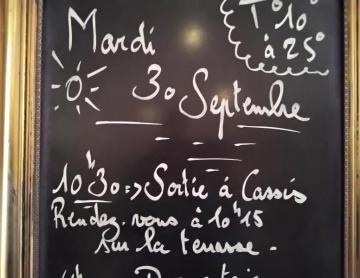 Mardi
T° 10°
à 25°
30 Septembre
10h30 => Sortie à Cassis
Rendez-vous à 10h15
sur la terrasse.